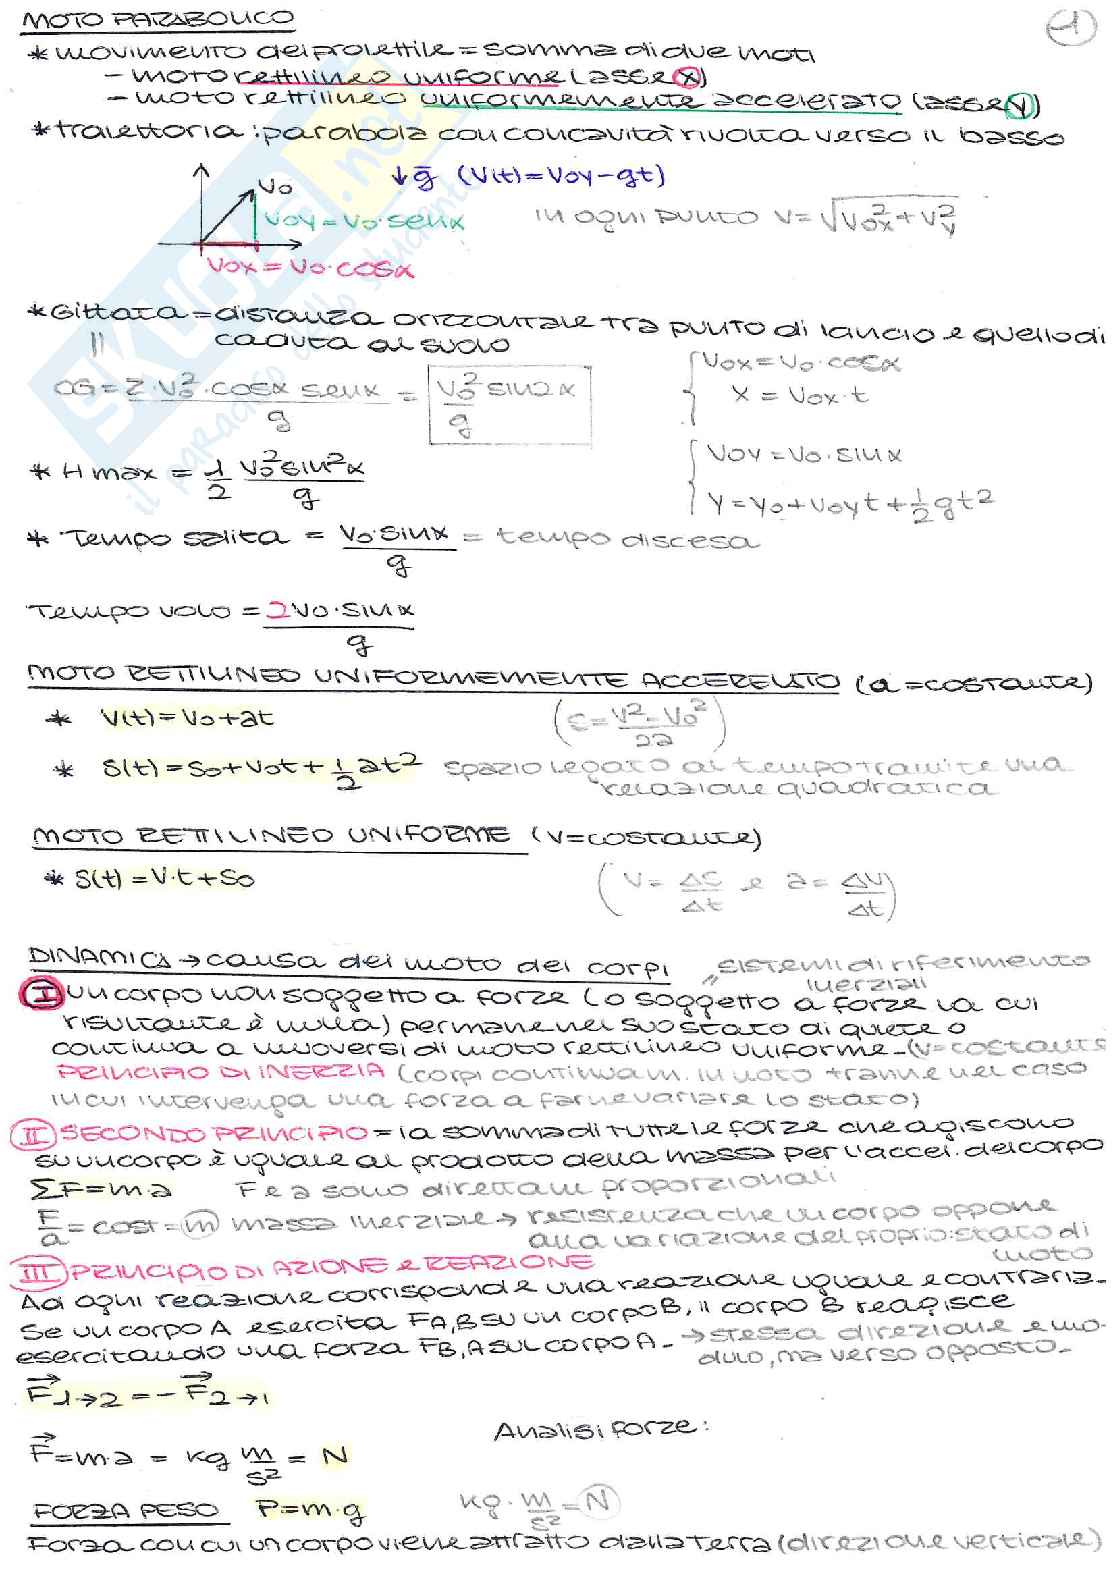 1
MOTO PARABOLICO
* movimento dei proiettile = somma di due moti
- moto rettilineo uniforme (asse x)
- moto rettilineo uniformemente accelerato (asse y)
* traiettoria: parabola con concavità rivolta verso il basso
↓ḡ (V(t)=Voy-gt)
Vo
Voy=Vo·senα
in ogni punto V=√(Vox²+Vy²)
Vox=Vo·cosα
* Gittata = distanza orizzontale tra punto di lancio e quello di
caduta al suolo
OG = 2·Vo²·cosα senα / g = Vo² sin2α / g
Vox=Vo·cosα
X = Vox·t
* H max = 1/2 Vo² sin²α / g
Voy=Vo·sinα
y=yo+Voyt+1/2gt²
* Tempo salita = Vo·sinα / g = tempo discesa
Tempo volo = 2Vo·sinα / g
MOTO RETTILINEO UNIFORMEMENTE ACCERELATO (a=costante)
* V(t)=Vo+at (S=V²-Vo² / 2a)
* S(t)=So+Vot+1/2at² spazio legato al tempo tramite una
relazione quadratica
MOTO RETTILINEO UNIFORME (V=costante)
* S(t)=V·t+So (V=ΔS/Δt e a=ΔV/Δt)
DINAMICA → causa del moto dei corpi
sistemi di riferimento
inerziali
I un corpo non soggetto a forze (o soggetto a forze la cui
risultante è nulla) permane nel suo stato di quiete o
continua a muoversi di moto rettilineo uniforme-(V=costante
PRINCIPIO DI INERZIA (corpi continuam. in moto tranne nel caso
in cui intervenga una forza a farne variare lo stato)
II SECONDO PRINCIPIO = la somma di tutte le forze che agiscono
su un corpo è uguale al prodotto della massa per l'accel. del corpo
ΣF=m·a F e a sono direttam proporzionali
F/a = cost = m massa inerziale → resistenza che un corpo oppone
alla variazione del proprio stato di
moto
III PRINCIPIO DI AZIONE e REAZIONE
Ad ogni reazione corrisponde una reazione uguale e contraria-
Se un corpo A esercita FA,B su un corpo B, il corpo B reagisce
esercitando una forza FB,A sul corpo A- → stessa direzione e mo-
dulo, ma verso opposto-
F⃗1→2 = -F⃗2→1
Analisi forze:
F⃗=m·a = kg m/s² = N
FORZA PESO P=m·g kg·m/s²=N
Forza con cui un corpo viene attratto dalla terra (direzione verticale)
SKUOLA.net
il paradiso dello studente